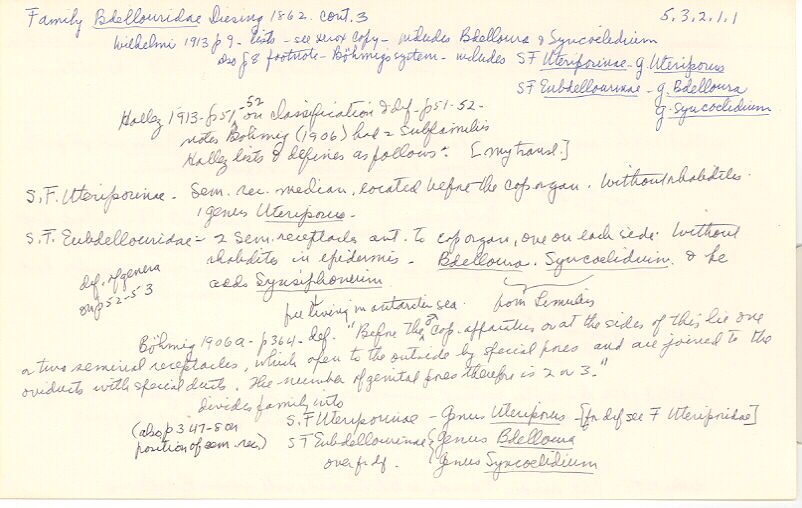 Family Bdellouridae Diesing 1862. cont. 3    5.3.2.1.1
Wilhelmi 1913 p 9 - lists - see xerox copy - includes Bdelloura & Syncoelidium
also p 8 footnote - Böhmig's system - includes SF Uteriporinae - g. Uteriporus
SF Eubdellourinae - g. Bdelloura
g. Syncoelidium
Hallez 1913 - p 51-52 on classification & def - p 51-52 -
notes Böhmig (1906) had 2 Subfamilies
Hallez lists & defines as follows: [my transl.]
S.F. Uteriporinae - Sem. rec. median, located before the cop organ. Without rhabdites.
1 genus Uteriporus -
S.F. Eubdellouridae = 2 Sem. receptacles ant. to cop organ, one on each side. Without
rhabdites in epidermis - Bdelloura, Syncoelidium & he
adds Synsiphonium.
def. of genera
on p 52-53
free living in antarctic sea. from Limulus
Böhmig 1906a - p 364 - def. "Before the ♂ cop. apparatus or at the sides of this lie one
or two seminal receptacles, which open to the outside by special pores and are joined to the
oviducts with special ducts. The number of genital pores therefore is 2 or 3."
divides family into
S.F Uteriporinae - Genus Uteriporus - [for def see F Uteriporidae]
(also p 347-8 on
position of sem. rec.)
SF Eubdellourinae { Genus Bdelloura
over for df. { Genus Syncoelidium